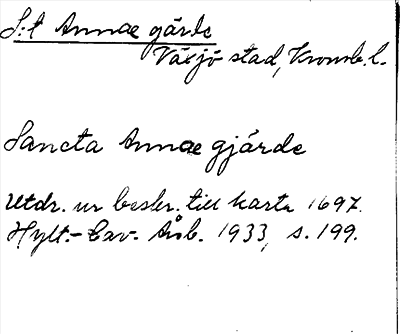 S:t Annae gärde
Växjö stad, Kronob. l.
Sancta Annae gjärde
Utdr. ur beskr. till karta 1697.
Hylt.-Cav. Årsb. 1933, s. 199.